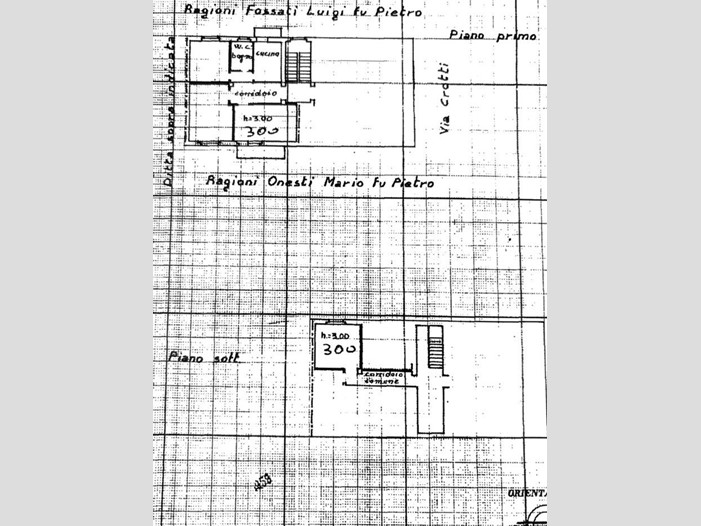 Ragioni Fossati Luigi fu Pietro
Piano primo
Ditta sopra indicata
W.C.
bagno
cucina
corridoio
h=3.00
300
Via Crotti
Ragioni Onesti Mario fu Pietro
h=3.00
300
Piano sott.
corridoio
comune
ORIENTA